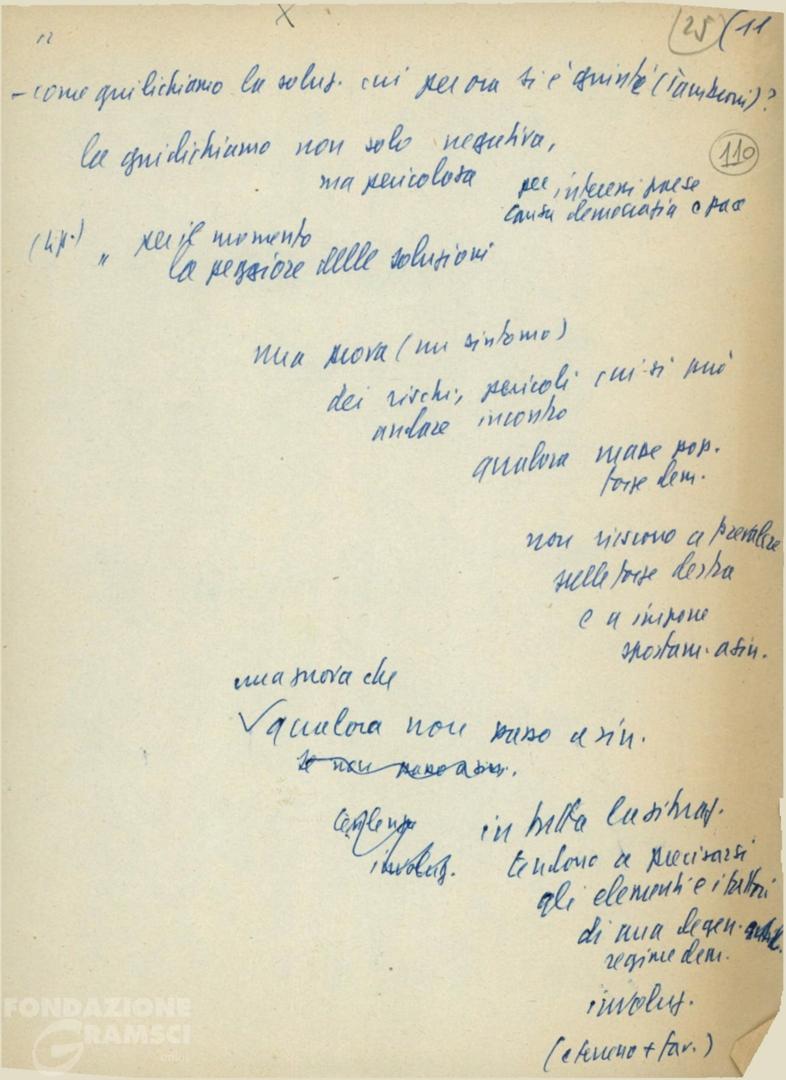 12
X
25 (11
- come giudichiamo la soluz. cui per ora si è giunti (Tambroni)?
110
la giudichiamo non solo negativa,
ma pericolosa per interessi paese
causa democrazia e pace
(rip.) " per il momento
la peggiore delle soluzioni
una prova (un sintomo)
dei rischi, pericoli cui si può
andare incontro
qualora masse pop.
forze dem.
non riescono a prevalere
sulle forze destra
e a imporre
spostam. a sin.
una prova che
√ qualora non passo a sin.
se non passo a sin.
tendenza in tutta la situaz.
involuz. tendono a precisarsi
gli elementi e i fattori
di una degen.
regime dem.
involuz.
(e terreno + fav.)
FONDAZIONE
GRAMSCI